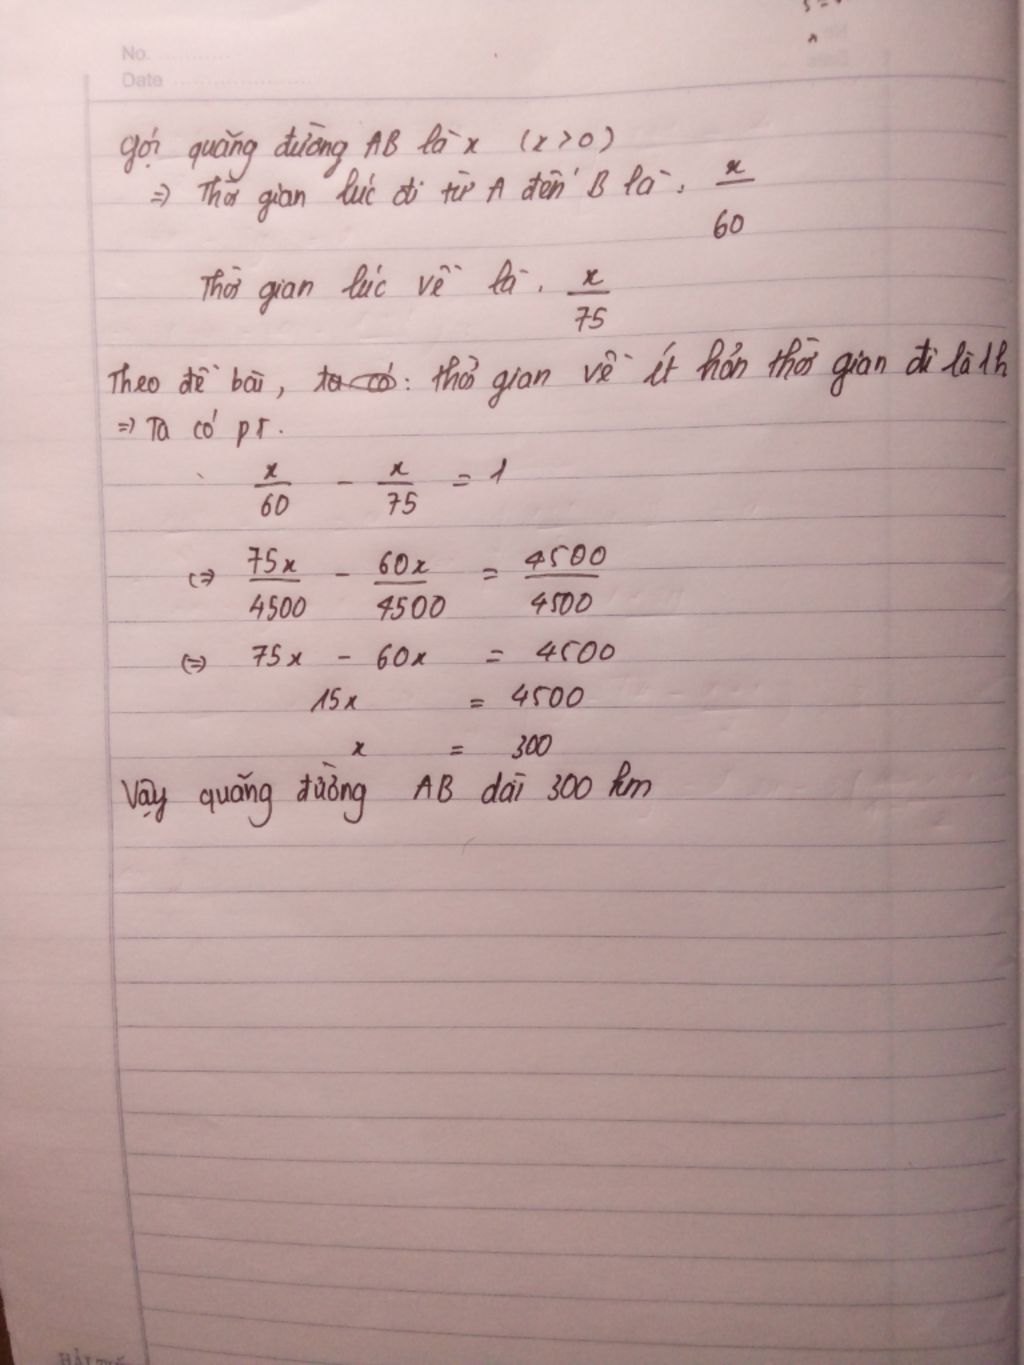 No. ............
Date ........................
Gọi quãng đường AB là x (x > 0)
=> Thời gian lúc đi từ A đến B là: x/60
Thời gian lúc về là: x/75
Theo đề bài, ta có: thời gian về ít hơn thời gian đi là 1h
=> Ta có pt:
x/60 - x/75 = 1
<=> 75x/4500 - 60x/4500 = 4500/4500
<=> 75x - 60x = 4500
15x = 4500
x = 300
Vậy quãng đường AB dài 300 km